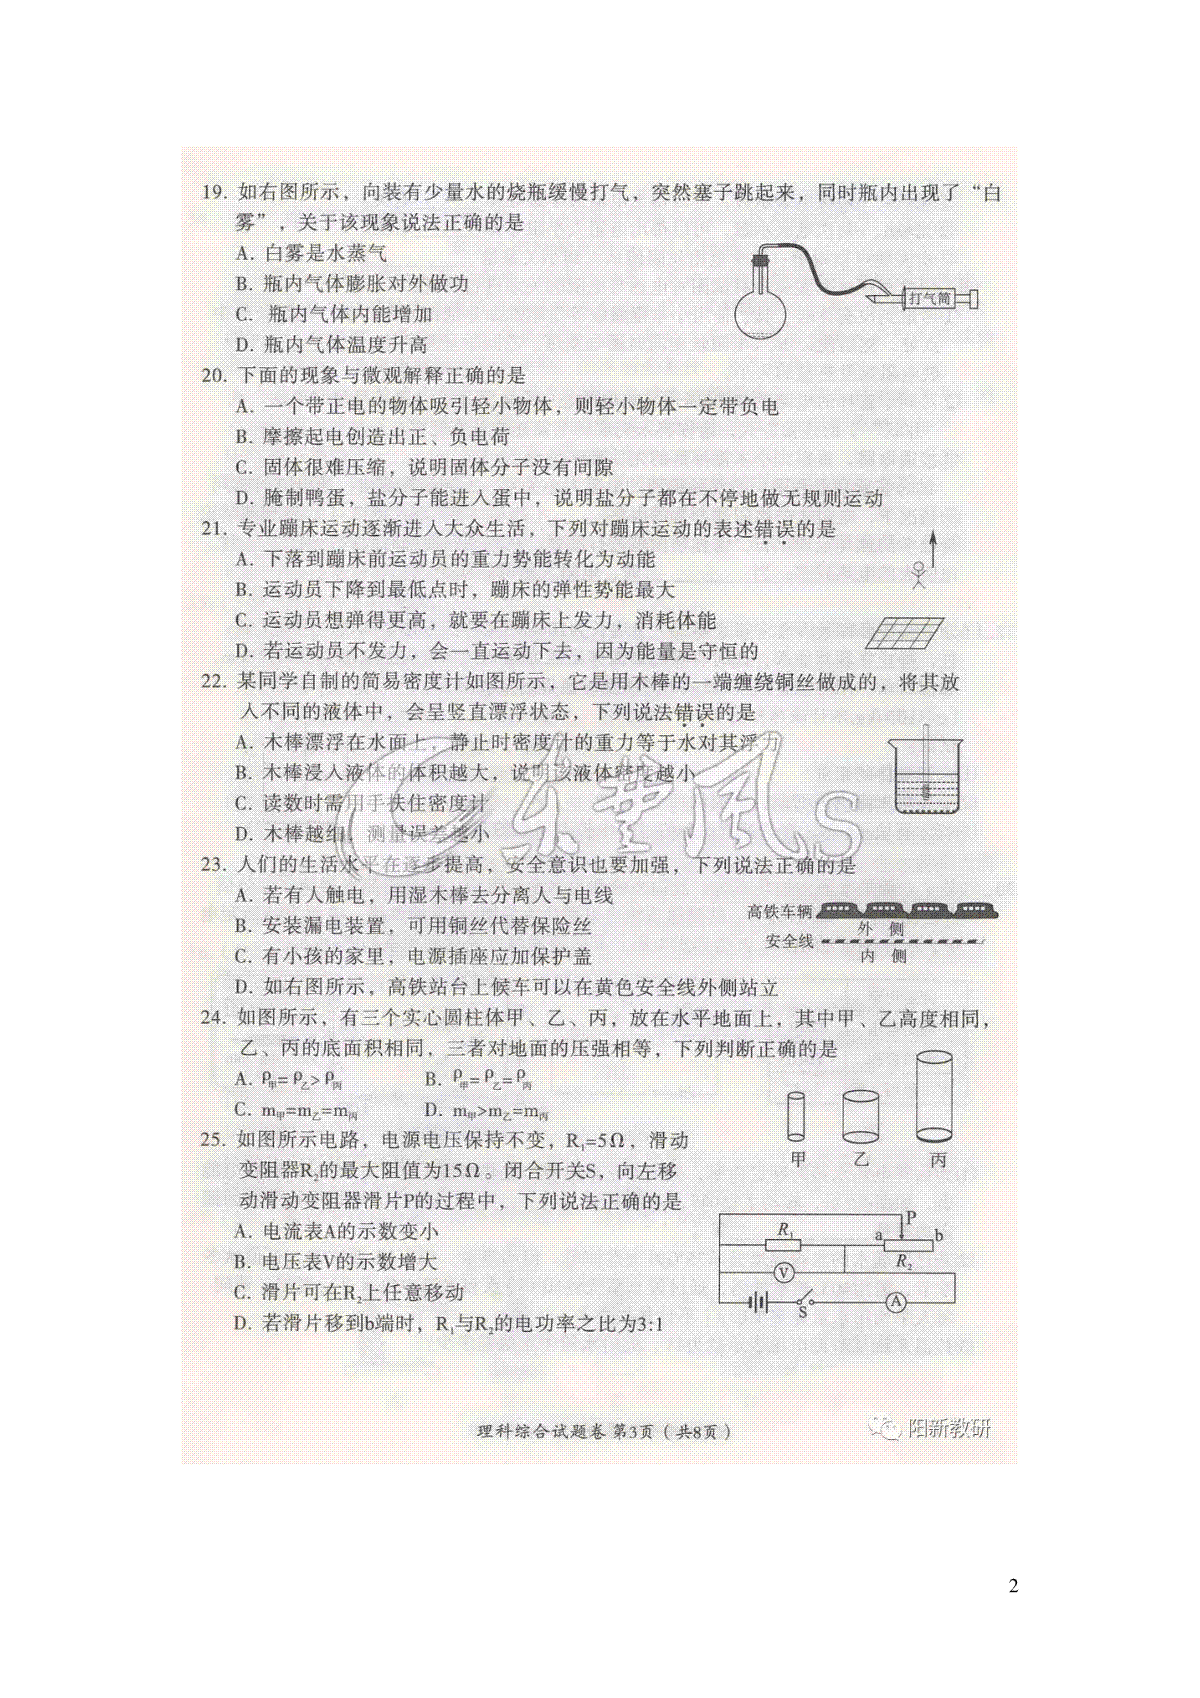 19. 如右图所示，向装有少量水的烧瓶缓慢打气，突然塞子跳起来，同时瓶内出现了“白
雾”，关于该现象说法正确的是
A. 白雾是水蒸气
B. 瓶内气体膨胀对外做功
C. 瓶内气体内能增加
D. 瓶内气体温度升高
打气筒
20. 下面的现象与微观解释正确的是
A. 一个带正电的物体吸引轻小物体，则轻小物体一定带负电
B. 摩擦起电创造出正、负电荷
C. 固体很难压缩，说明固体分子没有间隙
D. 腌制鸭蛋，盐分子能进入蛋中，说明盐分子都在不停地做无规则运动
21. 专业蹦床运动逐渐进入大众生活，下列对蹦床运动的表述错误的是
A. 下落到蹦床前运动员的重力势能转化为动能
B. 运动员下降到最低点时，蹦床的弹性势能最大
C. 运动员想弹得更高，就要在蹦床上发力，消耗体能
D. 若运动员不发力，会一直运动下去，因为能量是守恒的
22. 某同学自制的简易密度计如图所示，它是用木棒的一端缠绕铜丝做成的，将其放
入不同的液体中，会呈竖直漂浮状态，下列说法错误的是
A. 木棒漂浮在水面上，静止时密度计的重力等于水对其浮力
B. 木棒浸入液体的体积越大，说明该液体密度越小
C. 读数时需用手扶住密度计
D. 木棒越细，测量误差越小
23. 人们的生活水平在逐步提高，安全意识也要加强，下列说法正确的是
A. 若有人触电，用湿木棒去分离人与电线
B. 安装漏电装置，可用铜丝代替保险丝
C. 有小孩的家里，电源插座应加保护盖
D. 如右图所示，高铁站台上候车可以在黄色安全线外侧站立
高铁车辆
外 侧
安全线
内 侧
24. 如图所示，有三个实心圆柱体甲、乙、丙，放在水平地面上，其中甲、乙高度相同，
乙、丙的底面积相同，三者对地面的压强相等，下列判断正确的是
A. ρ甲=ρ乙>ρ丙 B. ρ甲=ρ乙=ρ丙
C. m甲=m乙=m丙 D. m甲>m乙=m丙
甲 乙 丙
25. 如图所示电路，电源电压保持不变，R₁=5Ω，滑动
变阻器R₂的最大阻值为15Ω。闭合开关S，向左移
动滑动变阻器滑片P的过程中，下列说法正确的是
A. 电流表A的示数变小
B. 电压表V的示数增大
C. 滑片可在R₂上任意移动
D. 若滑片移到b端时，R₁与R₂的电功率之比为3:1
P
R₁ a b
R₂
V
S A
东莞风S
理科综合试题卷 第3页（共8页）
阳新教研
2